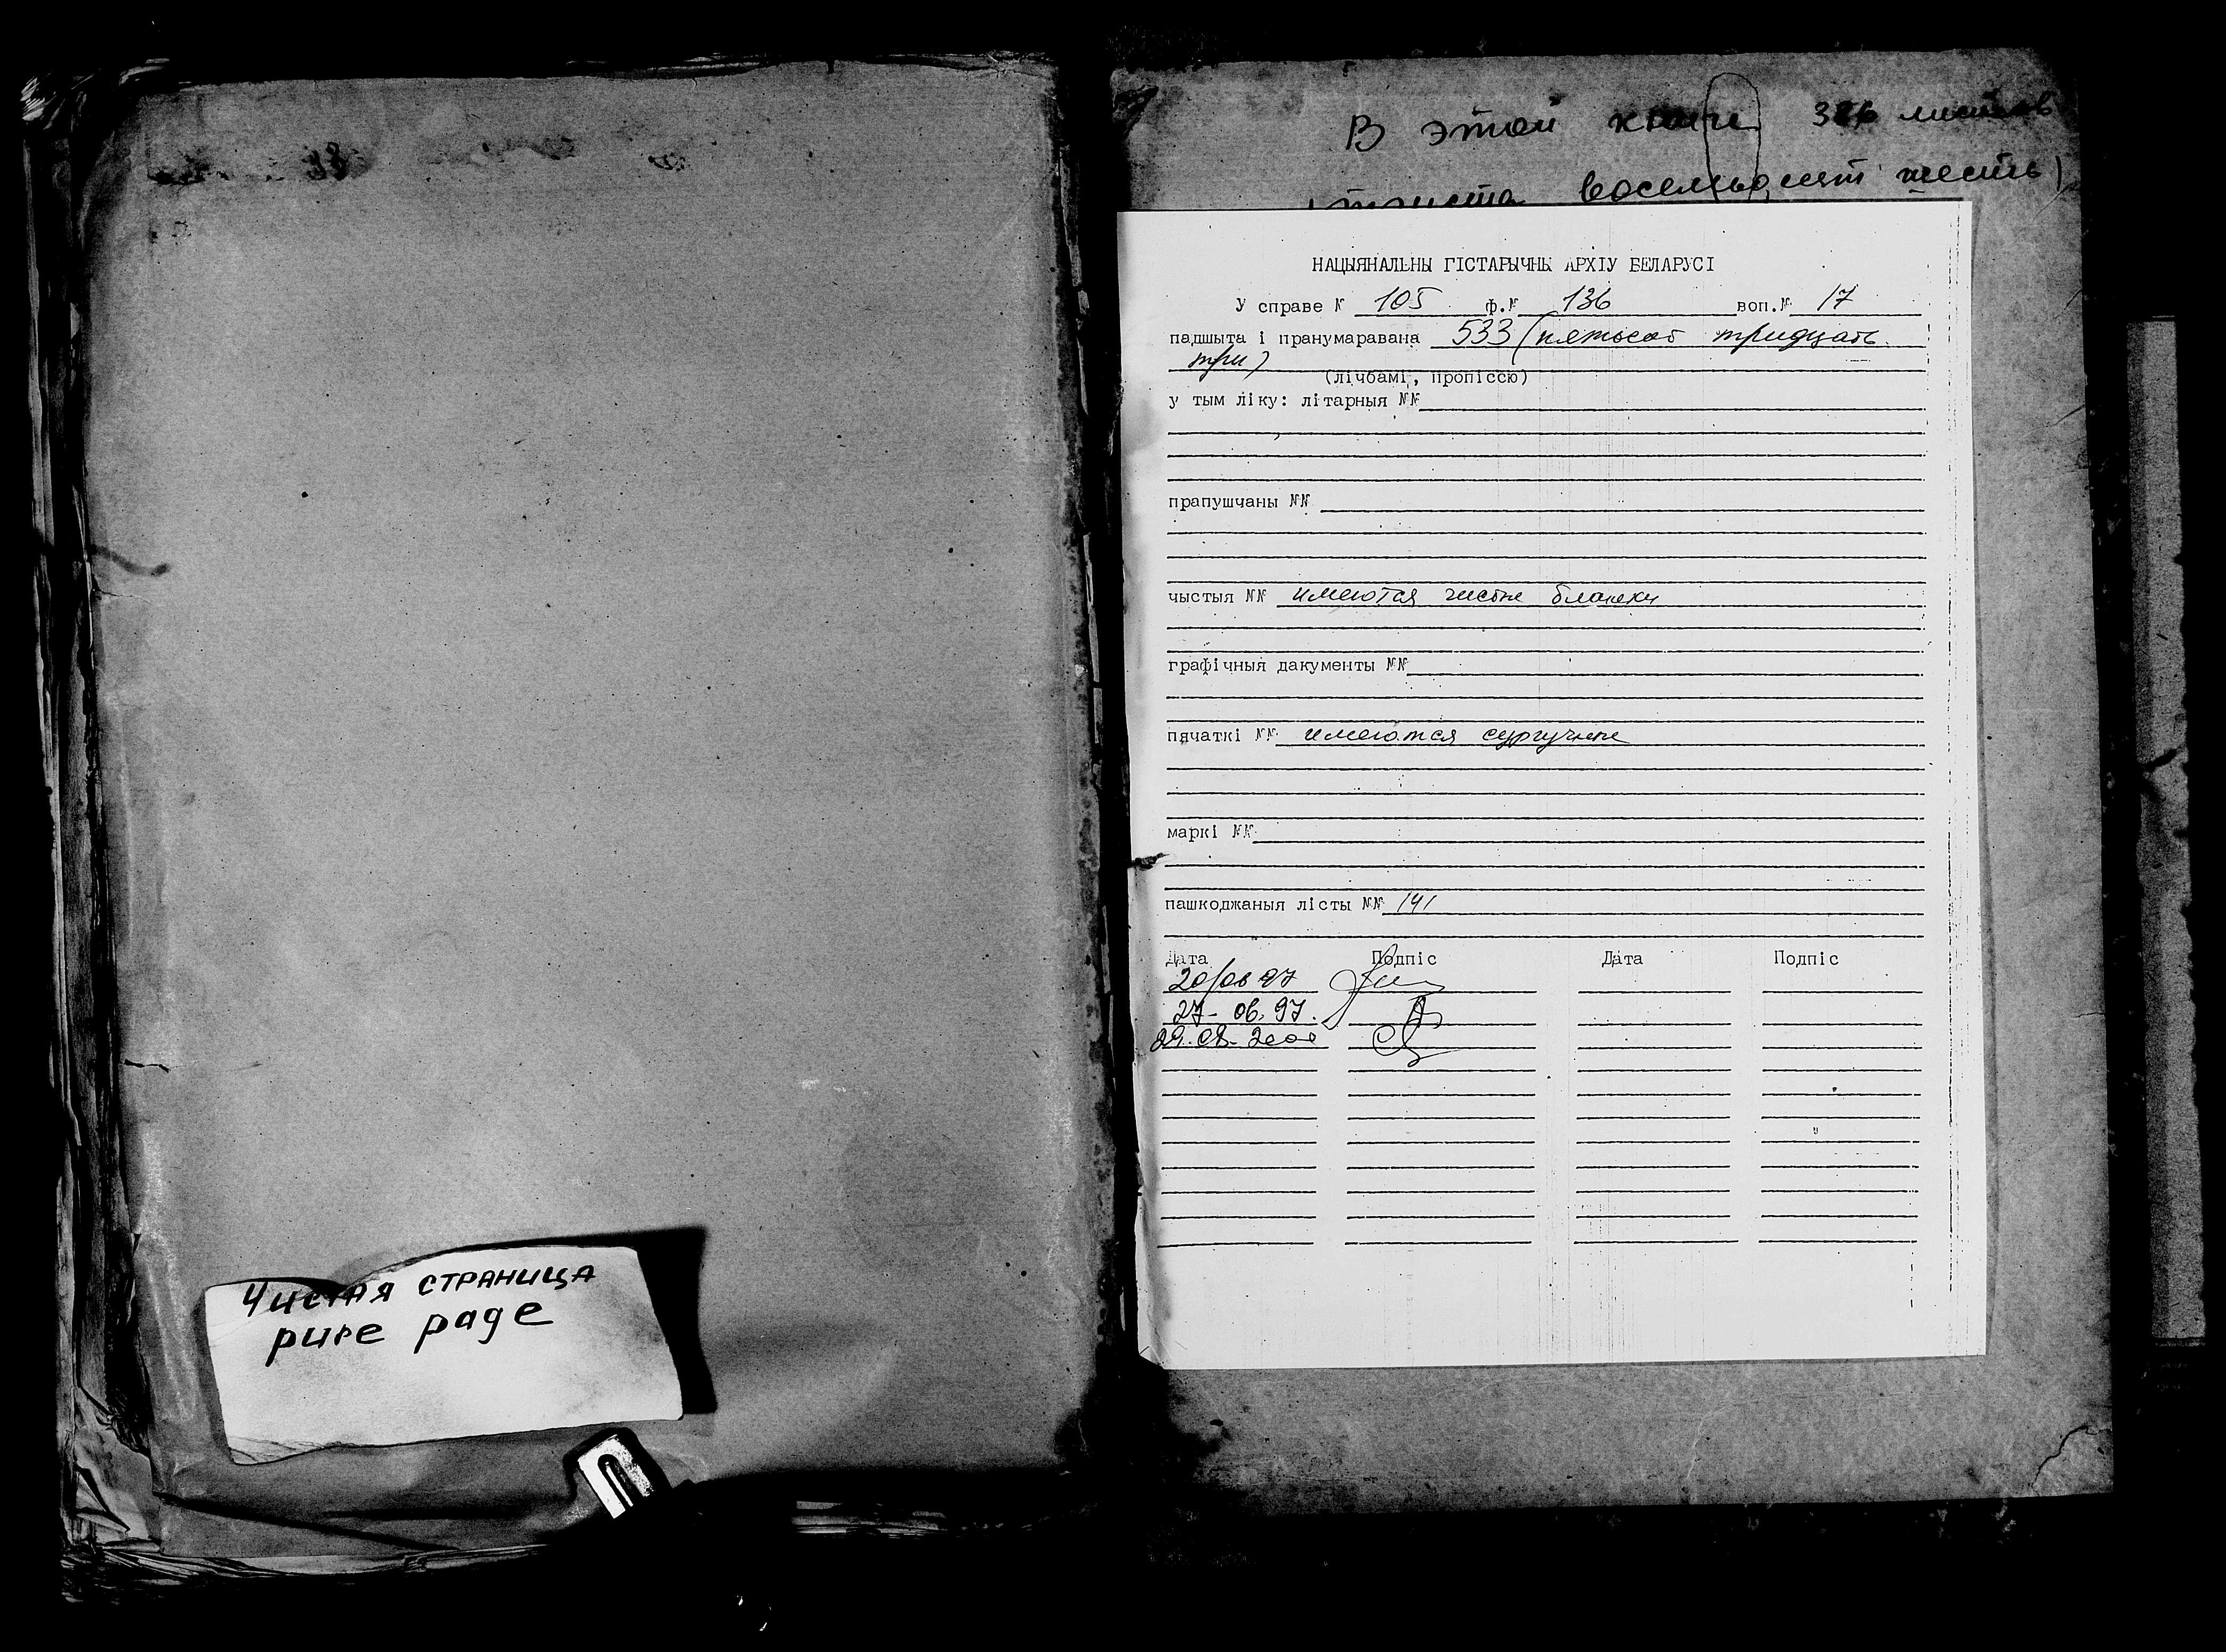 Чистая страница
pure page
В этой книге 386 листов
(триста восемьдесят шесть)
НАЦЫЯНАЛЬНЫ ГІСТАРЫЧНЫ АРХІУ БЕЛАРУСІ
У справе № 105 ф.№ 136 воп.№ 17
падшыта і пранумаравана 533 (пятьсот тридцать
три)
(лічбамі, пропіссю)
у тым ліку: літарныя №№
прапушчаны №№
чыстыя №№ имеются чистые бланки
графічныя дакументы №№
пячаткі №№ имеются сургучные
маркі №№
пашкоджаныя лісты №№ 141
Дата Подпіс Дата Подпіс
20/06 97
27- 06. 97.
29. 08. 2000